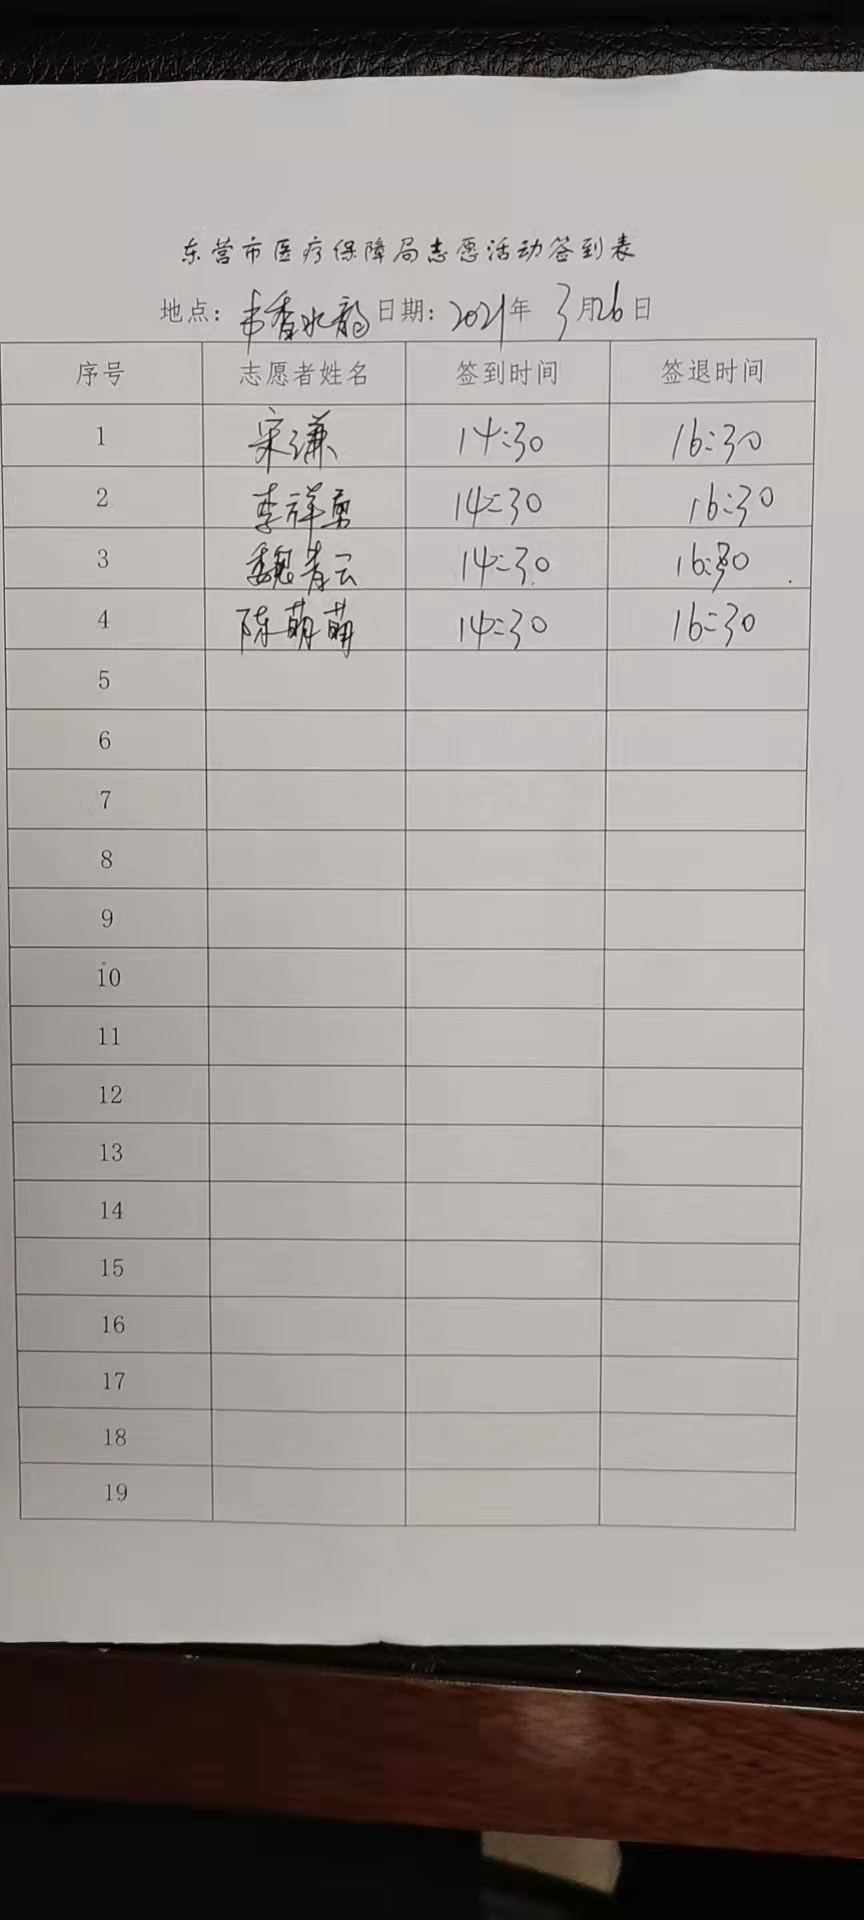 东营市医疗保障局志愿活动签到表
地点：书香水韵 日期：2021年 3月26日
序号 志愿者姓名 签到时间 签退时间
1 宋谦 14:30 16:30
2 李祥勇 14:30 16:30
3 魏青云 14:30 16:30
4 陈萌萌 14:30 16:30
5
6
7
8
9
10
11
12
13
14
15
16
17
18
19